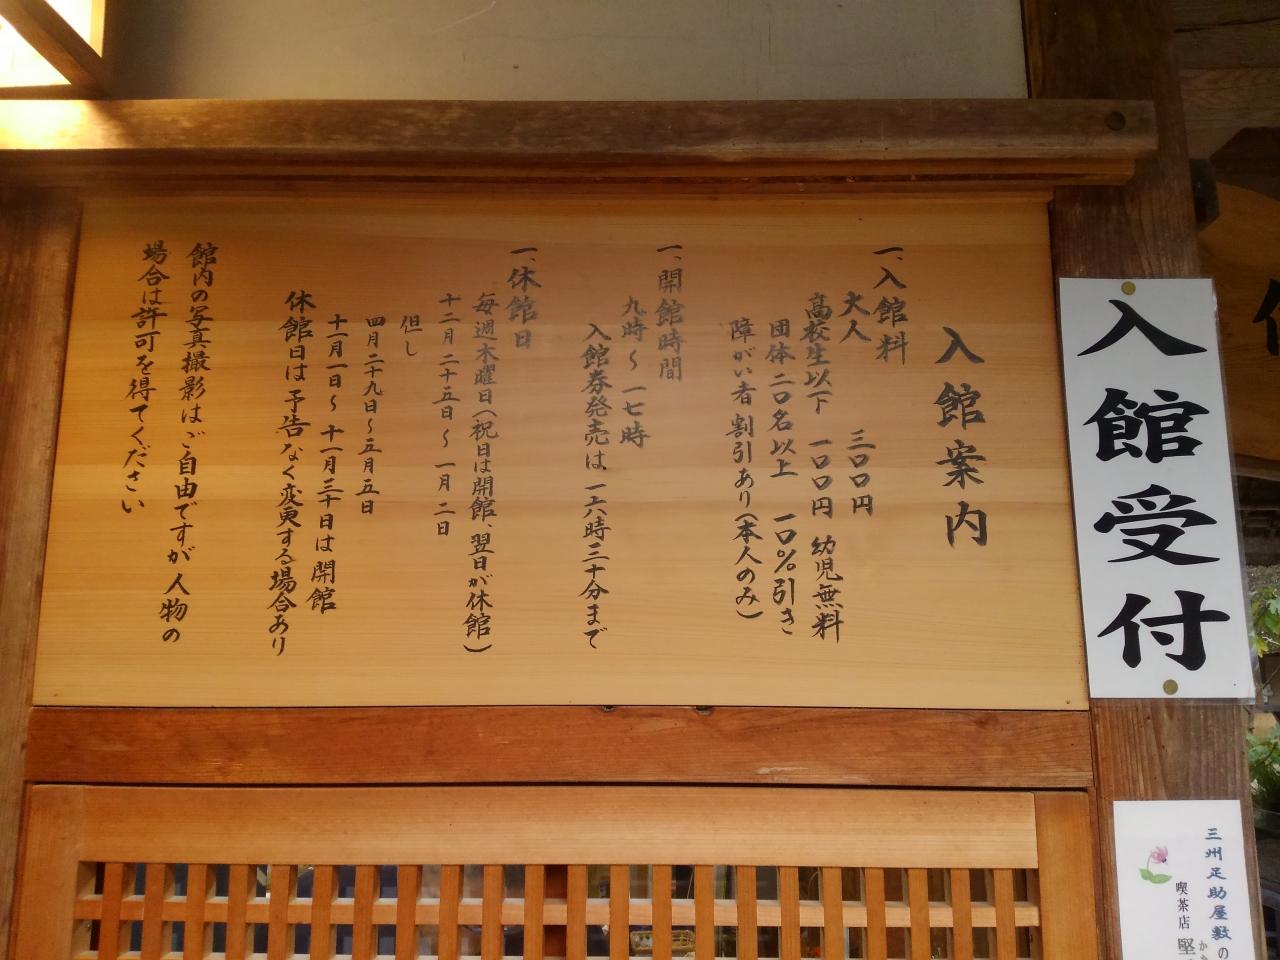 入館案内
一、入館料
大人 三〇〇円
高校生以下 一〇〇円 幼児無料
団体 二〇名以上 一〇%引き
障がい者 割引あり(本人のみ)
一、開館時間
九時〜一七時
入館券発売は、一六時三十分まで
一、休館日
毎週木曜日(祝日は開館、翌日が休館)
十二月二十五日〜一月二日
但し
四月二十九日〜五月五日
十一月一日〜十一月三十日は開館
休館日は予告なく変更する場合あり
館内の写真撮影はご自由ですが人物の
場合は許可を得てください
入館受付
三州足助屋敷の
喫茶店 堅